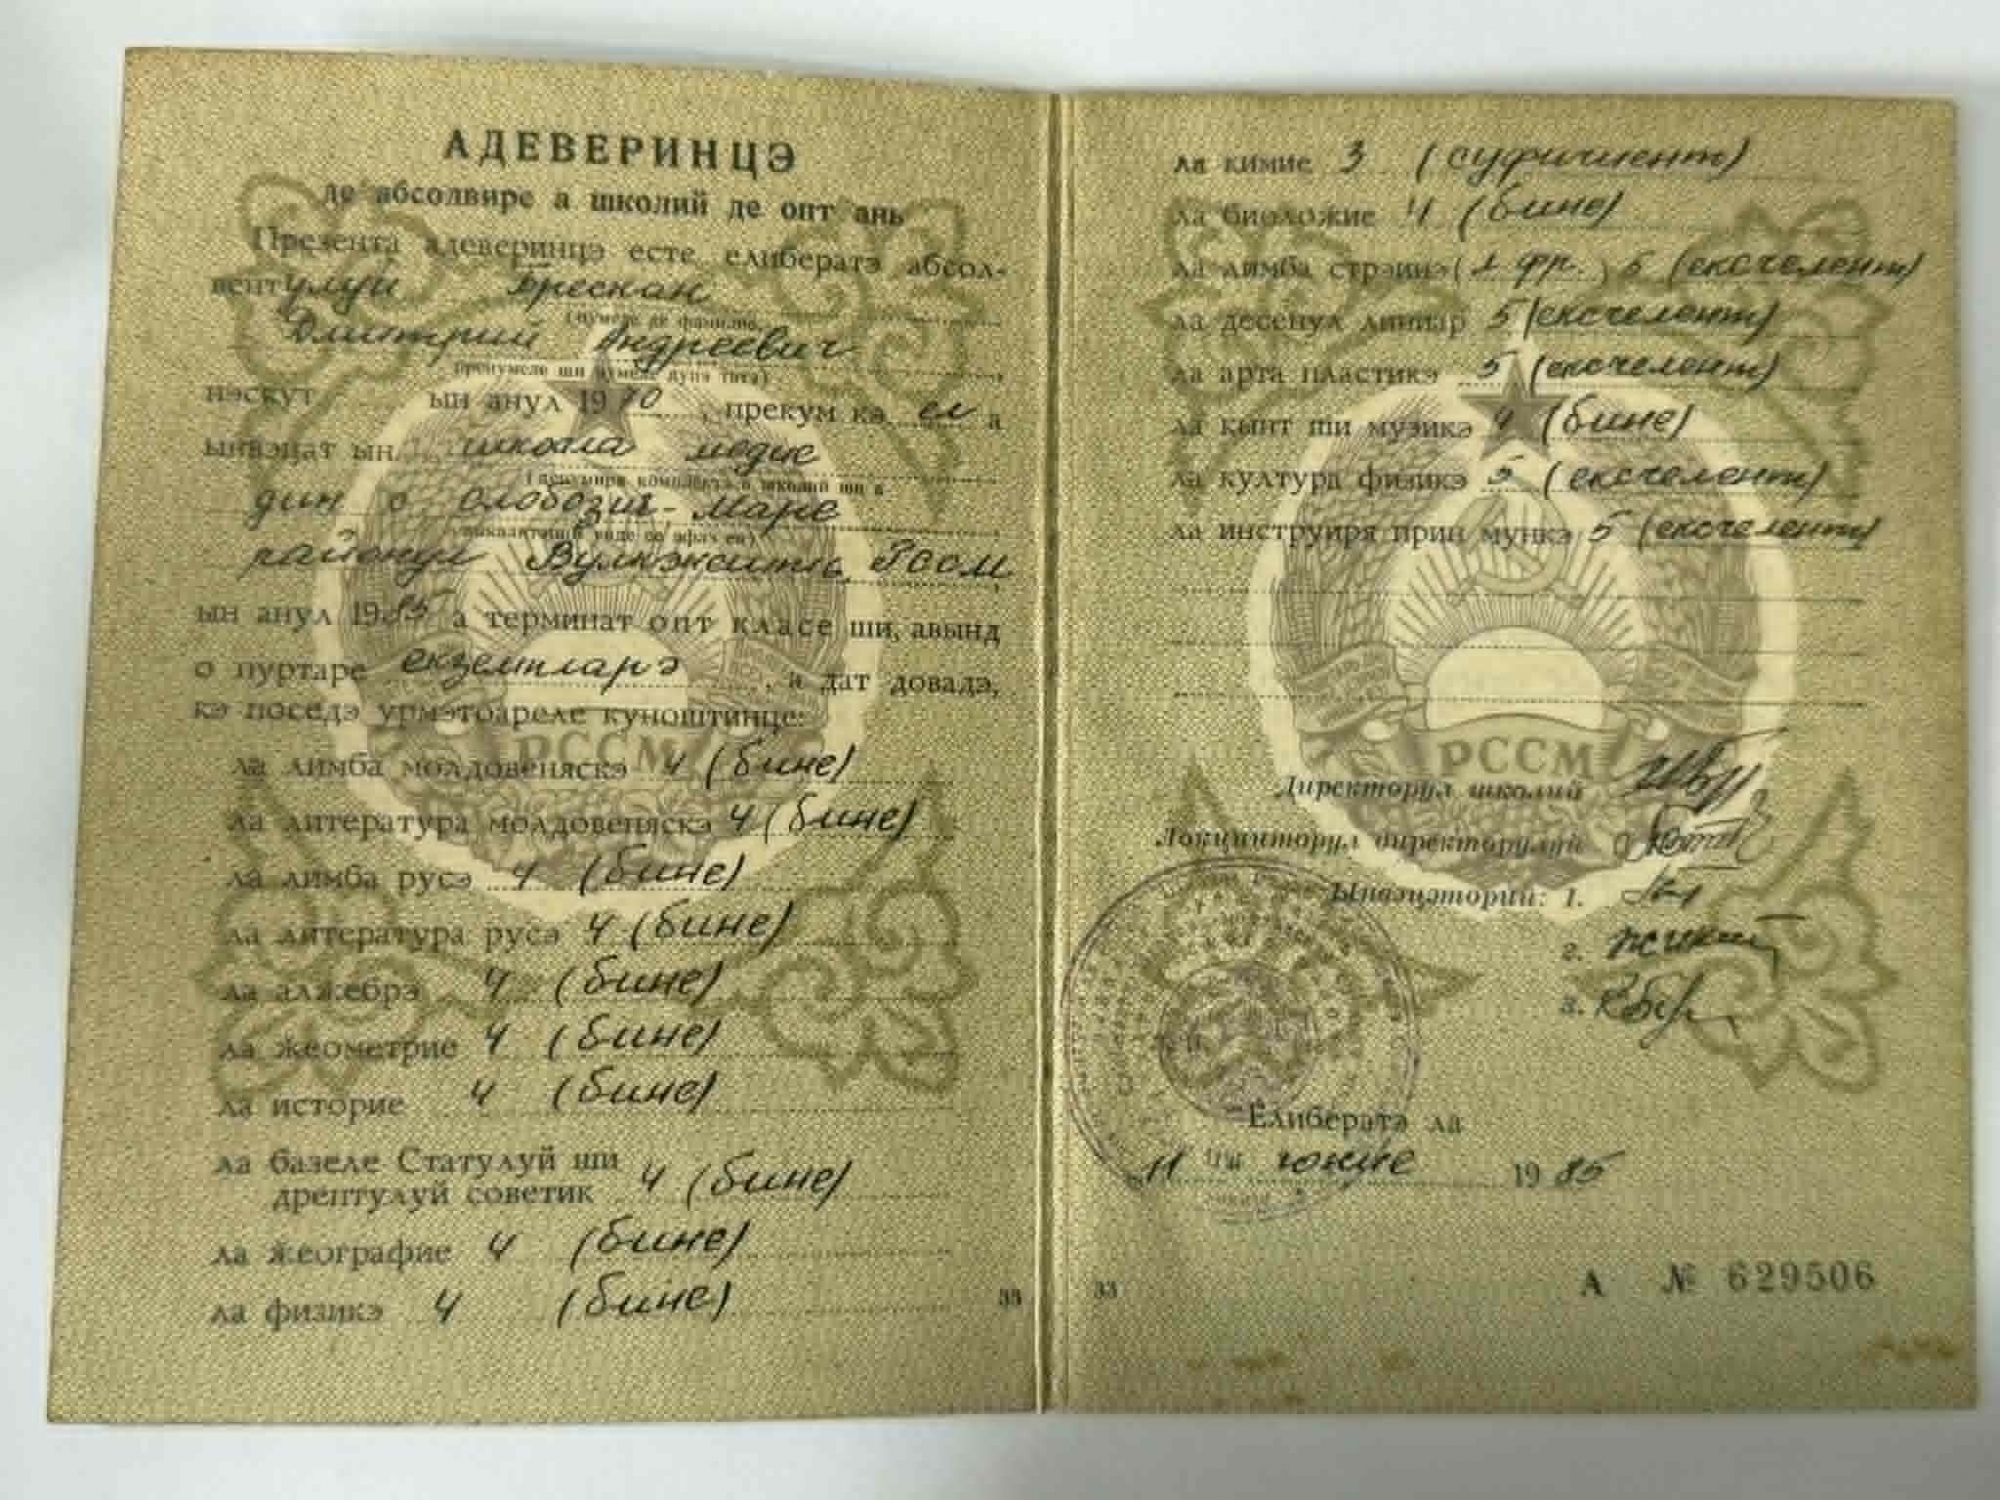 АДЕВЕРИНЦЭ
де абсолвире а школий де опт ань
Презента адеверинцэ есте елибератэ абсол-
вентулуй Брескан
(нумеле де фамилие,
Дмитрий Андреевич
пренумеле ши нумеле дупэ татэ)
нэскут ын анул 1970, прекум кэ ел а
ынвэцат ын школа медие
(денумиря комплектэ а школий ши а
дин с Слобозия-Маре
локалитэций унде се афлэ еа)
районул Вулкэнешть, РССМ,
ын анул 1985 а терминат опт класе ши, авынд
о пуртаре екземпларэ, а дат довадэ,
кэ поседэ урмэтоареле куноштинце:
РССМ
ла лимба молдовеняскэ 4 (бине)
ла литература молдовеняскэ 4 (бине)
ла лимба русэ 4 (бине)
ла литература русэ 4 (бине)
ла алжебрэ 4 (бине)
ла жеометрие 4 (бине)
ла историе 4 (бине)
ла базеле Статулуй ши
дрептулуй советик 4 (бине)
ла жеографие 4 (бине)
ла физикэ 4 (бине)
33
ла кимие 3 (суфичиент)
ла биоложие 4 (бине)
ла лимба стрэинэ (л. фр.) 5 (ексчелент)
ла десенул линиар 5 (ексчелент)
ла арта пластикэ 5 (ексчелент)
ла кынт ши музикэ 4 (бине)
ла култура физикэ 5 (ексчелент)
ла инструиря прин мункэ 5 (ексчелент)
РССМ
Директорул школий
Локцииторул директорулуй
Ынвэцэторий: 1.
2.
3.
Елибератэ ла
11 июние 1985
33
А № 629506